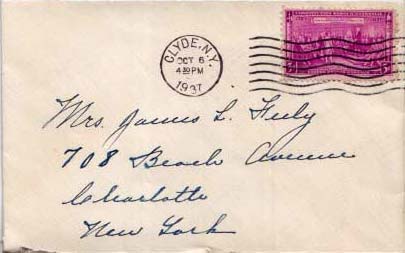 CLYDE, N.Y.
OCT 6
4 30 PM
1937
Mrs. James L. Feely
708 Beach Avenue
Charlotte
New York